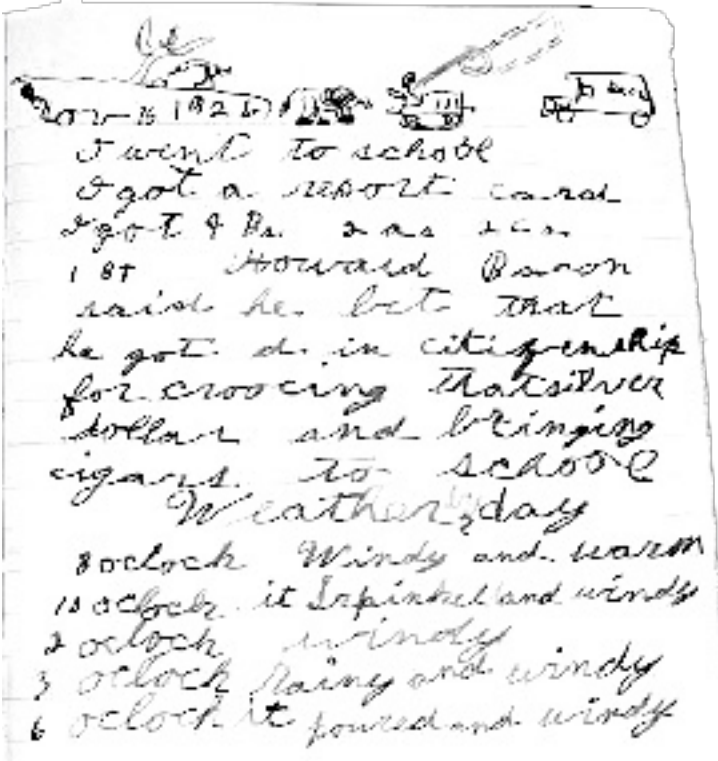 Nov-16 1926
I went to schoole
I got a report card
I got 4 Bs. 2 as 2 cs
1 B+ Howard Baron
said he bet that
he got d. in citizenship
for croocing thatsilver
dollar and bringing
cigars. to schoole
Weather day
8 oclock Windy and warm
10 oclock it Srpinkel and windy
2 oclock windy
3 oclock rainy and windy
6 oclock it poured and windy